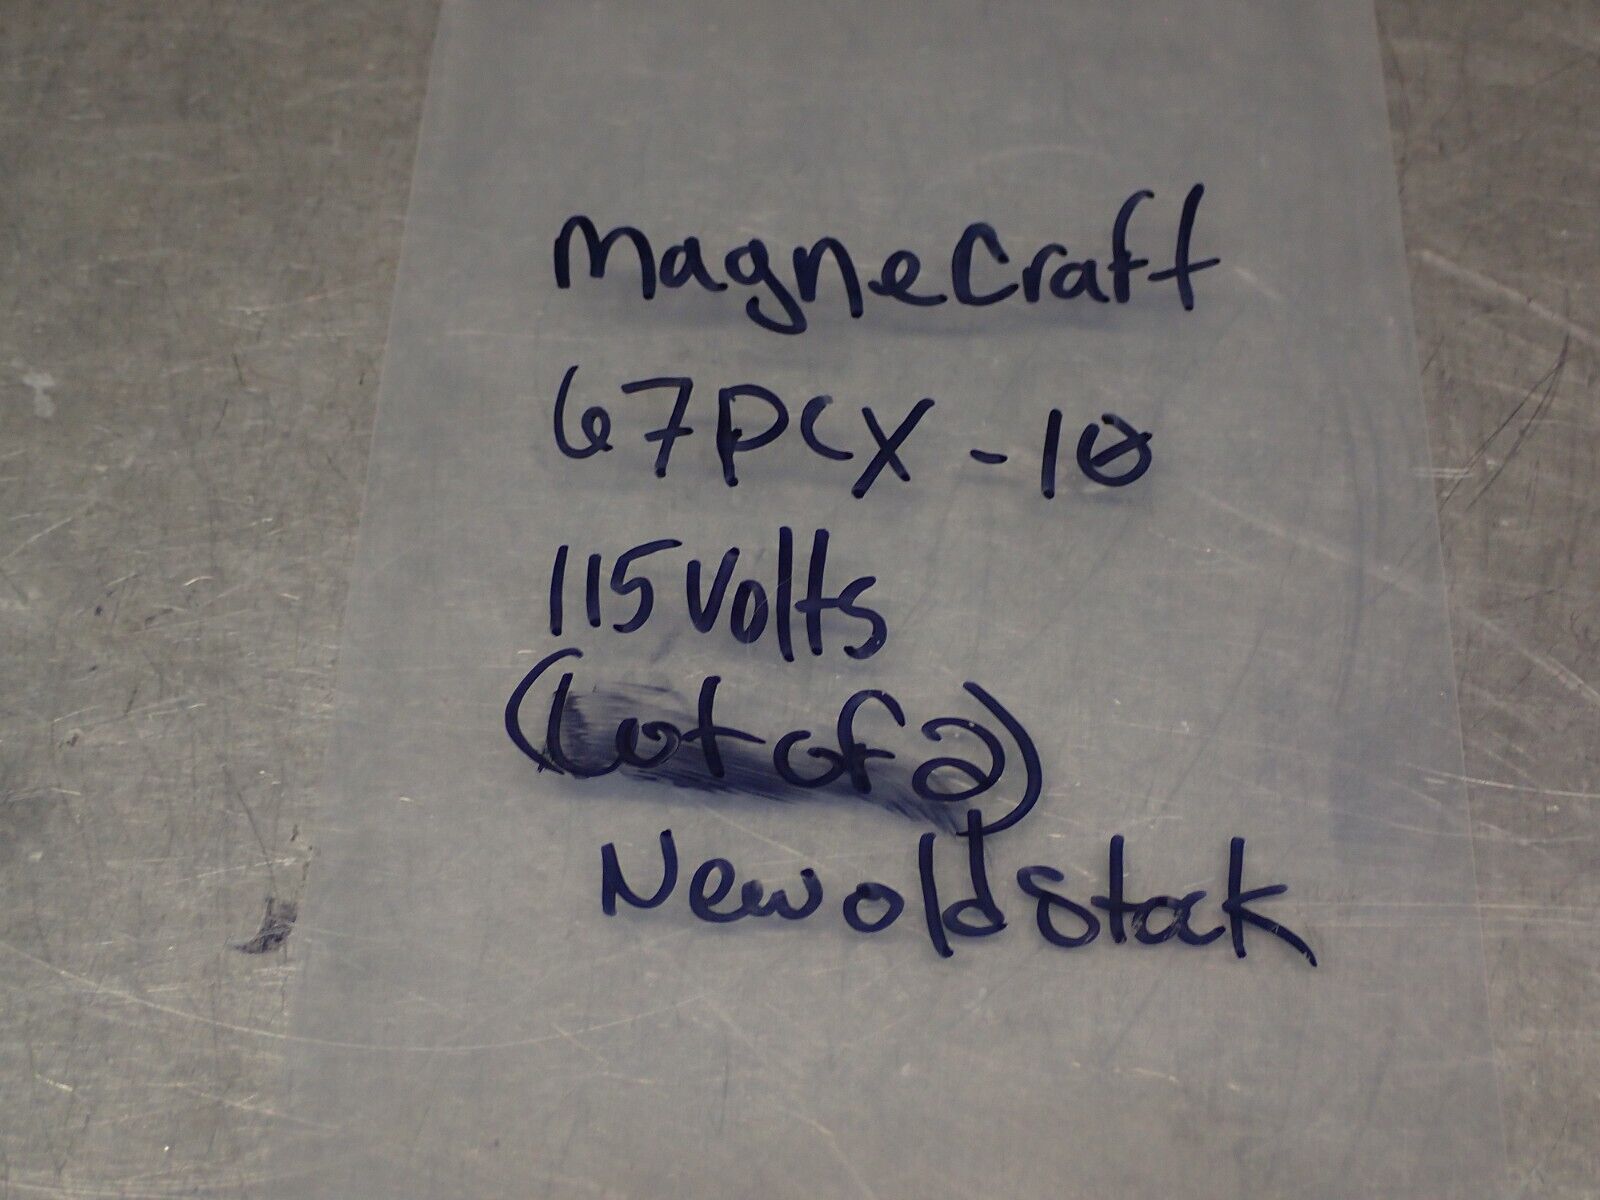 MagneCraft
67PCX-10
115Volts
(Lot of 2)
New old Stock